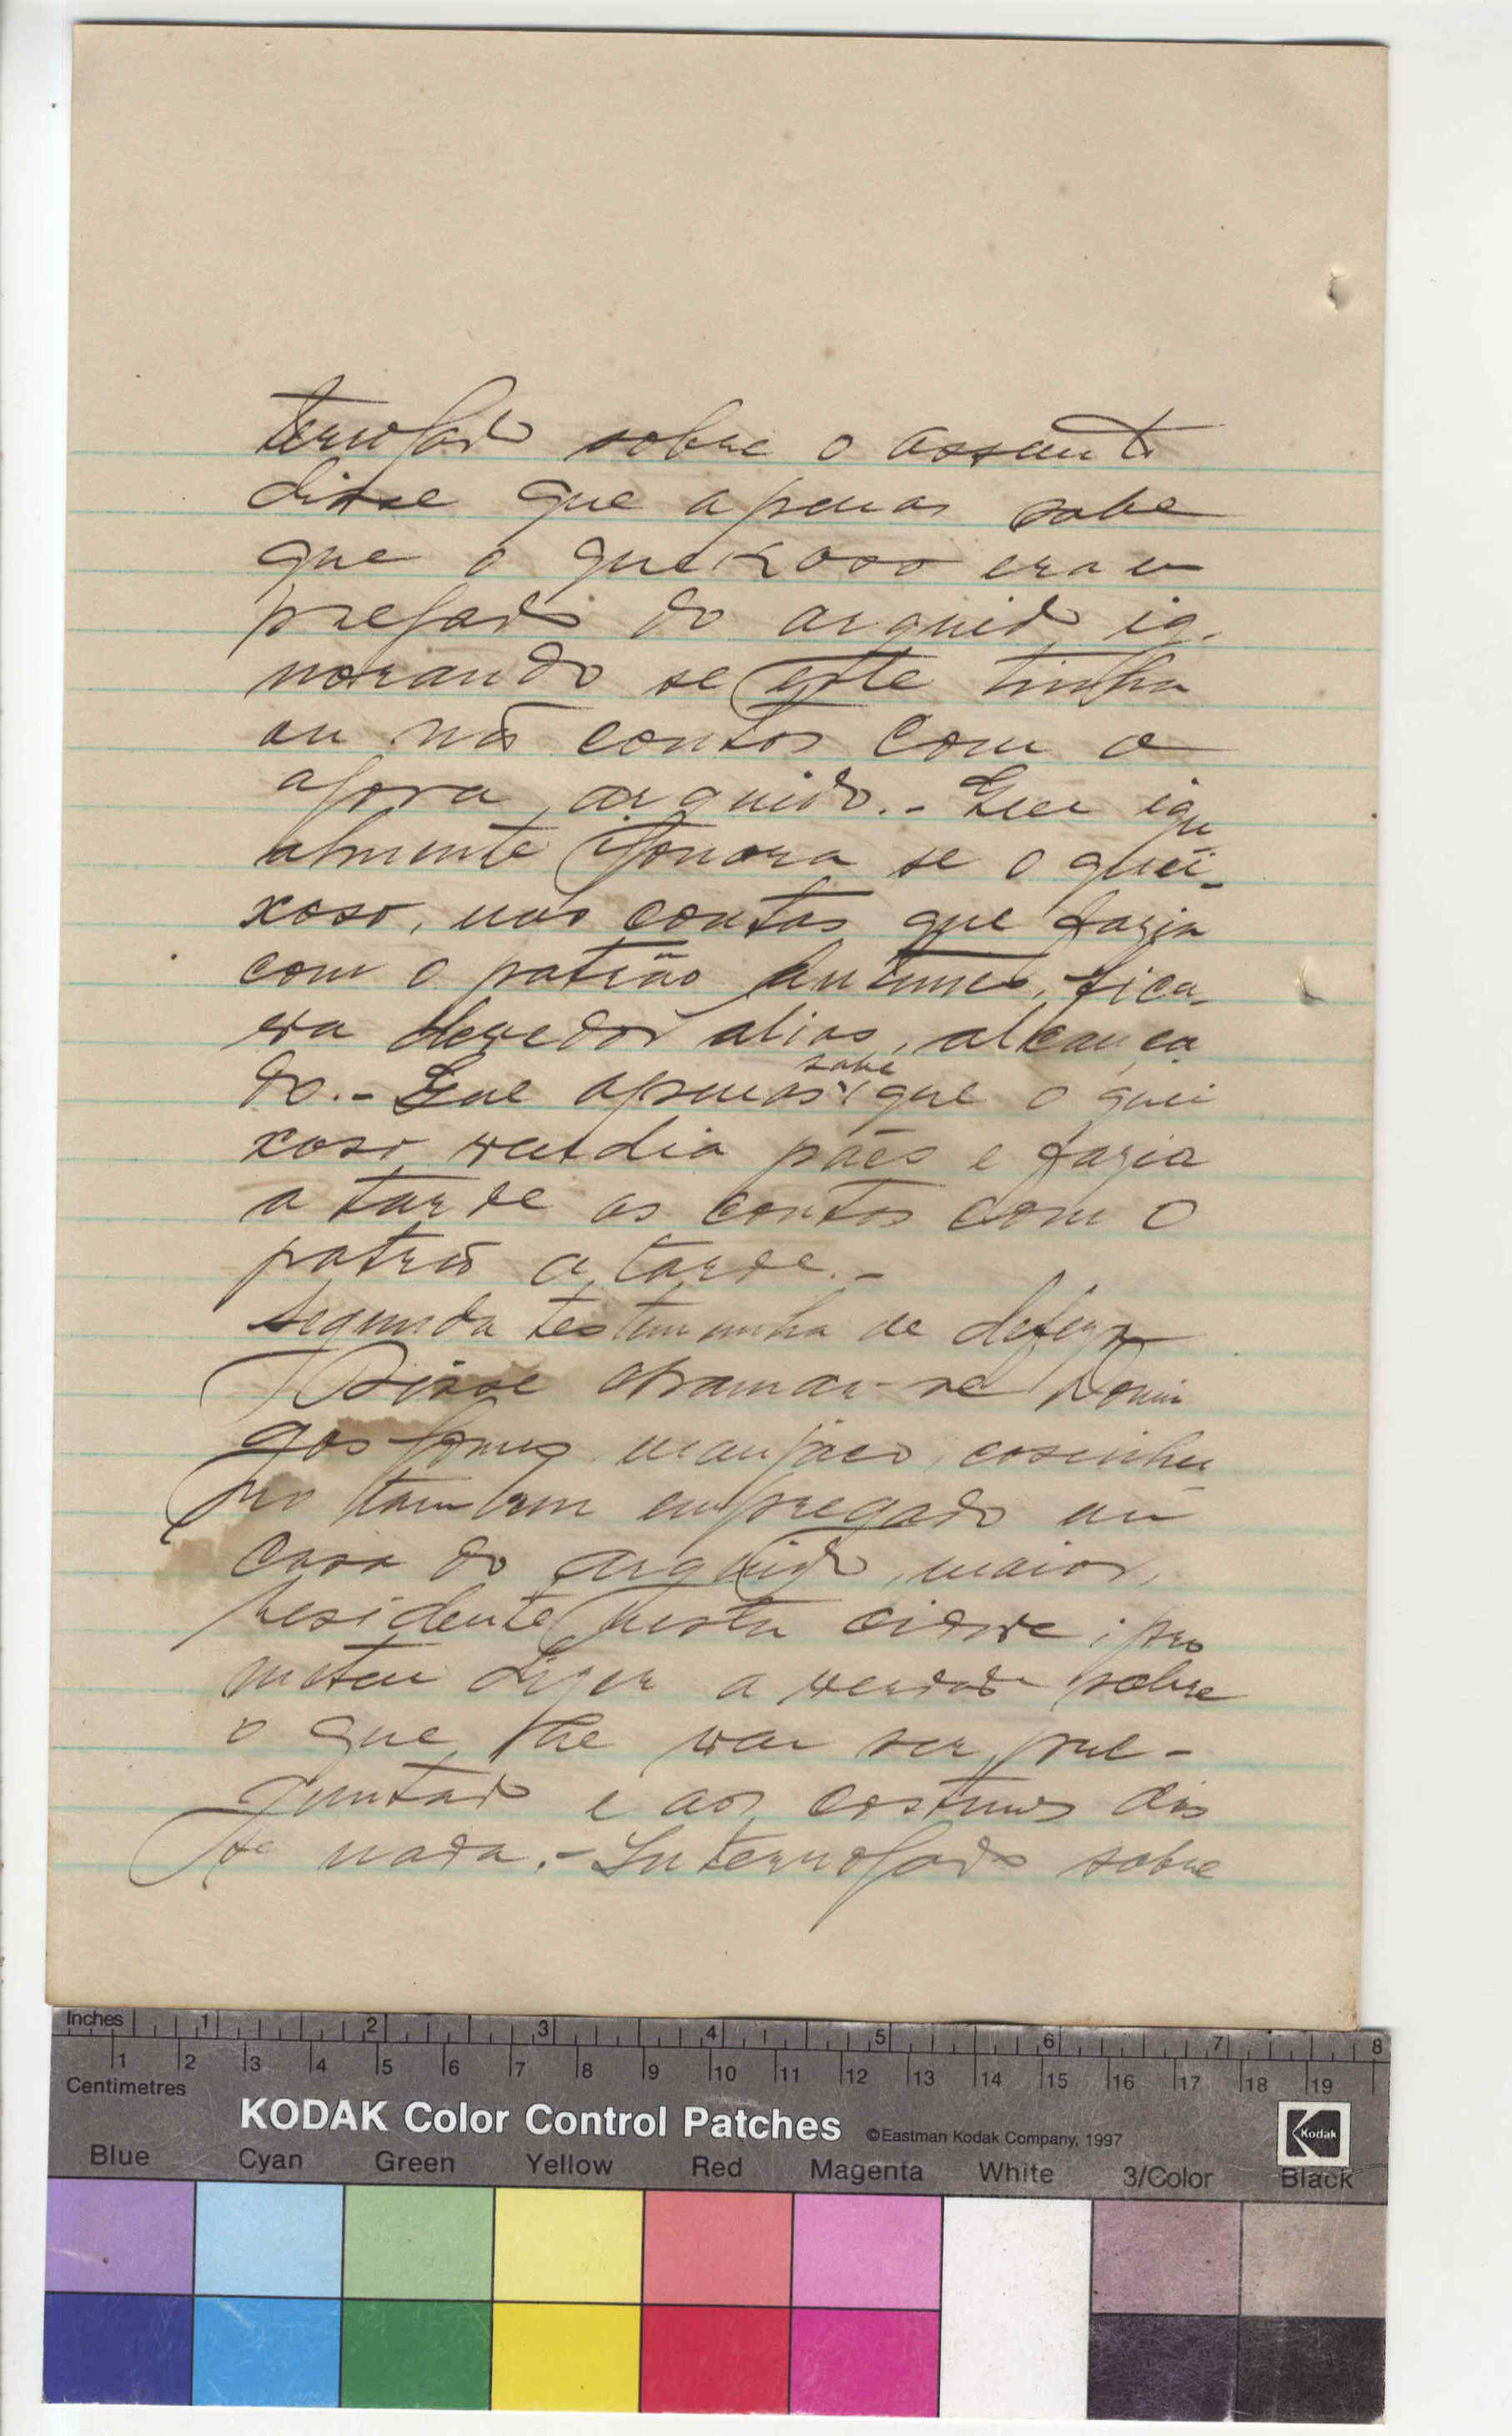 terrogado sobre o assunto
disse que apenas sabe
que o queixoso era em
pregado do arguido ig-
norando se este tinha
ou não contas com o
agora arguido.- Que igu
almente ignora se o quei-
xoso, nas contas que fazia
com o patrão Antunes, fica-
va devedor alias, alcança
do.- Que apenas sabe que o quei
xoso vendia pães e fazia
a tarde as contas com o
patrão a tarde.-
Segunda testemunha de defeza
Disse chamar-se Domin
gos Gomes, manjaco, cosinhei
ro tambem empregado em
casa do arguido, maior,
residente nesta cidade; pro
meteu dizer a verdade sobre
o que lhe vai ser pre-
guntado e aos costumes dis
se nada.- Interrogado sobre
Inches 1 2 3 4 5 6 7 8
1 2 3 4 5 6 7 8 9 10 11 12 13 14 15 16 17 18 19
Centimetres
KODAK Color Control Patches ©Eastman Kodak Company, 1997 Kodak
Blue Cyan Green Yellow Red Magenta White 3/Color Black